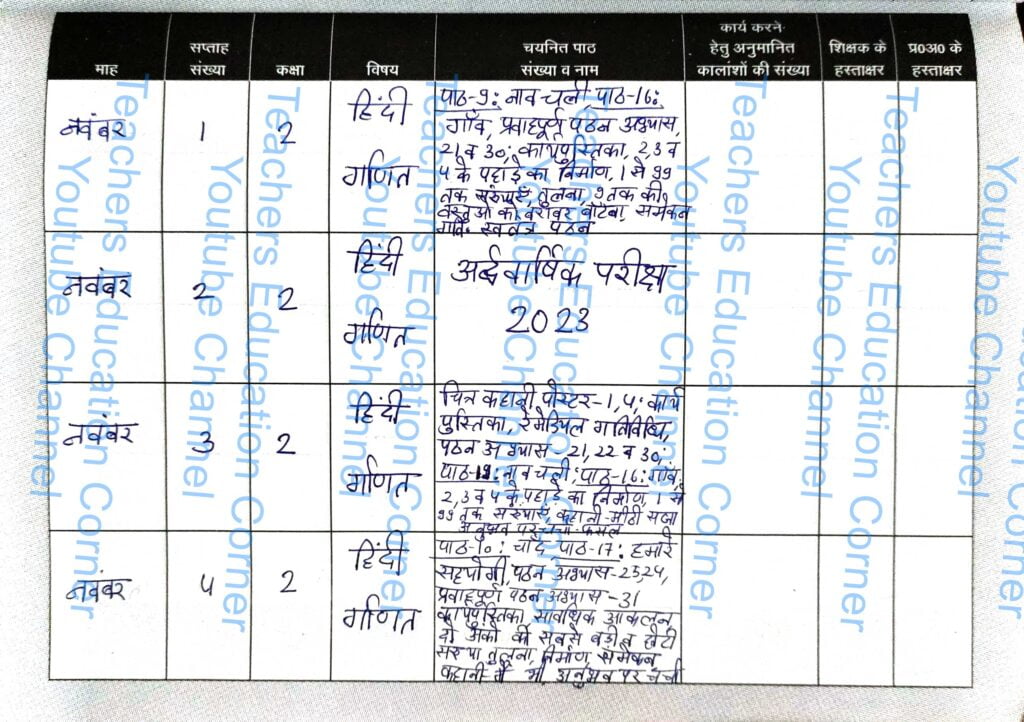 माह
सप्ताह
संख्या
कक्षा
विषय
चयनित पाठ
संख्या व नाम
कार्य करने
हेतु अनुमानित
कालांशों की संख्या
शिक्षक के
हस्ताक्षर
प्र०अ० के
हस्ताक्षर
नवंबर
1
2
हिंदी
गणित
पाठ-9: नाव चली, पाठ-16:
गाँव, प्रवाहपूर्ण पठन अभ्यास,
21 व 30; कार्यपुस्तिका, 2,3 व
4 के पहाड़े का निर्माण, 1 से 99
तक संख्याएं, तुलना, 9 तक की
वस्तुओं को बराबर बाँटना, समेकन
स्वतंत्र पठन
नवंबर
2
2
हिंदी
गणित
अर्द्धवार्षिक परीक्षा
2023
नवंबर
3
2
हिंदी
गणित
चित्र कहानी पोस्टर-1,4; कार्य
पुस्तिका, रेमेडियल गतिविधि,
पठन अभ्यास-21,22 व 30;
नाव चली; पाठ-16: गाँव;
2,3 व 4 के पहाड़े का निर्माण, 1 से
99 तक संख्याएं, कहानी-मीठी
अनुभव पर चर्चा-फसल
नवंबर
4
2
हिंदी
गणित
पाठ-10: चाँद पाठ-17: हमारे
सहयोगी, पठन अभ्यास-23,24,
प्रवाहपूर्ण पठन अभ्यास-31
कार्यपुस्तिका, सावधिक आकलन
दो अंकों की सबसे बड़ी व छोटी
संख्या तुलना, निर्माण, समेकन
कहानी अनुभव पर चर्चा
Teachers Education Corner
Youtube Channel
Teachers Education Corner
Youtube Channel
Teachers Education Corner
Youtube Channel
Teachers Education Corner
Youtube Channel
Teachers Education Corner
Youtube Channel
Teachers Education Corner
Youtube Channel